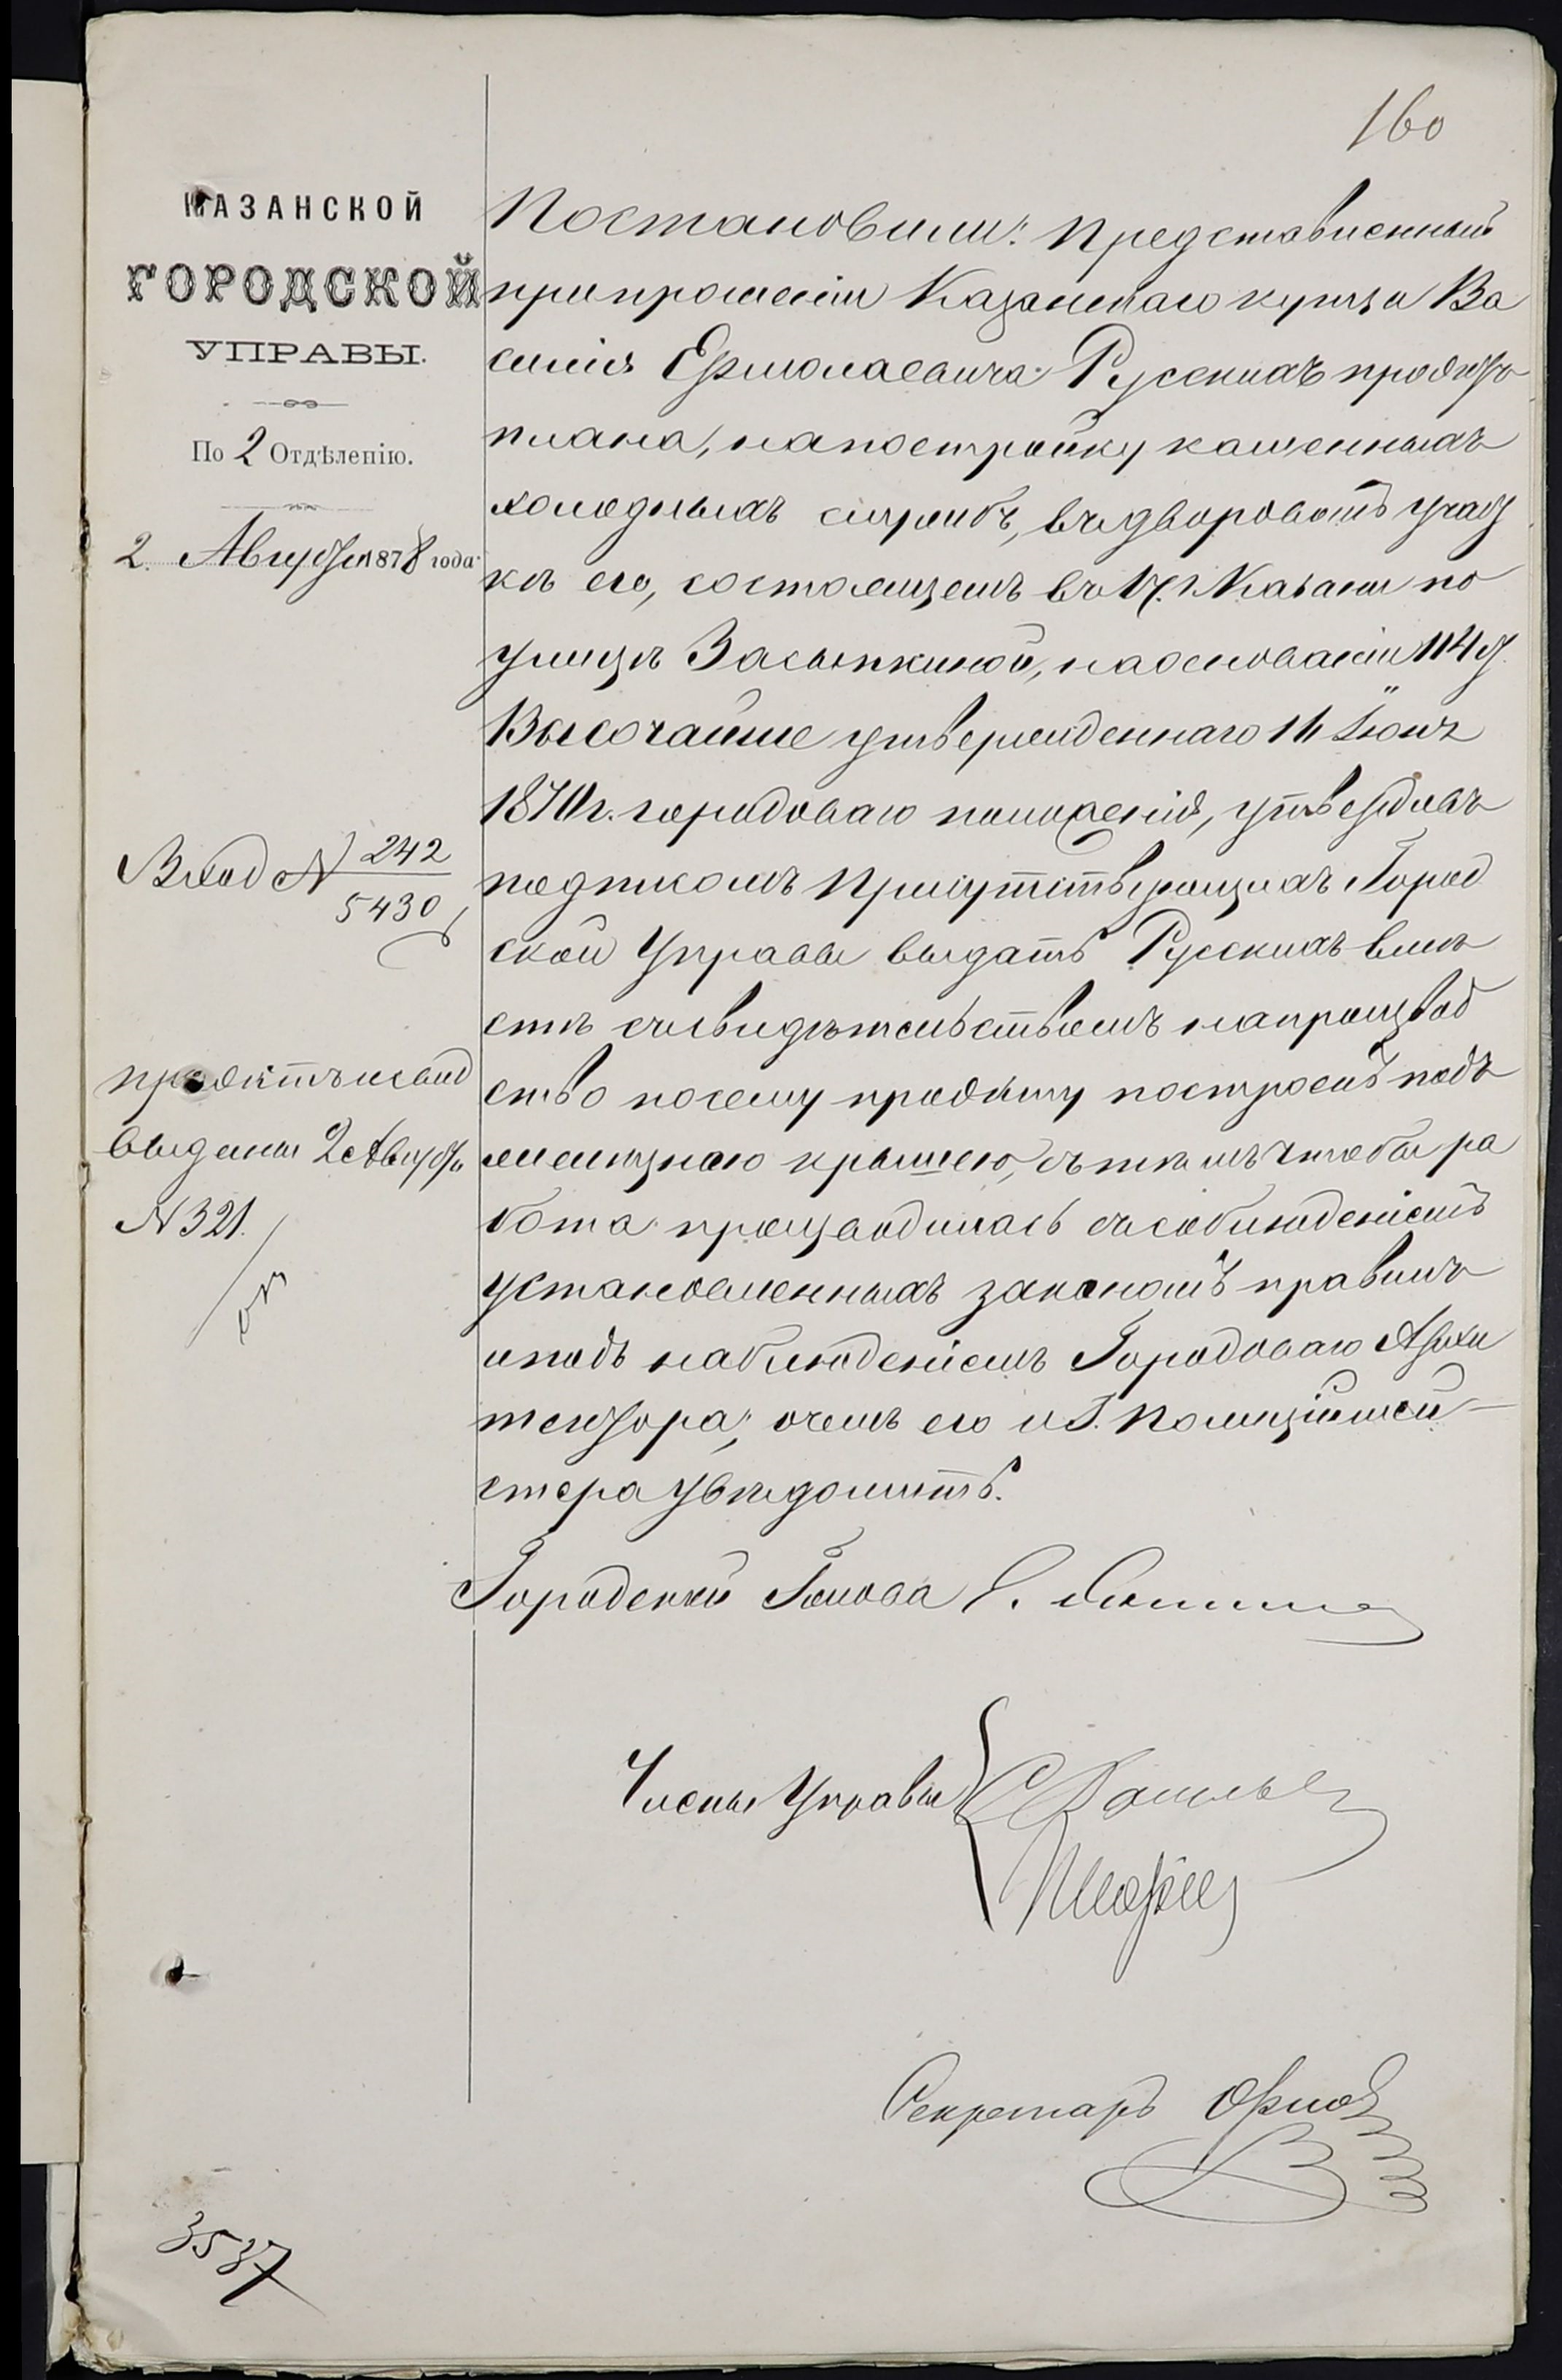 160
КАЗАНСКОЙ
ГОРОДСКОЙ
УПРАВЫ.
По 2 Отдѣленію.
2. Августа 1878 года
Вход № 242
5430
проэктъ и свид
выданы 2 Августа
№ 321.
Постановили: Представленный
при прошеніи Казанскаго купца Ва
силія Ермолаевича Русскихъ проэктъ
плана, на постройку каменныхъ
холодныхъ службъ, въ дворовомъ участ
кѣ его, состоящемъ въ г. Казани по
улицѣ Засыпкиной, на основаніи 114 ст.
Высочайше утвержденнаго 16 Іюня
1870 г. городоваго положенія, утвердивъ
подписомъ Присутствующихъ Город
ской Управы выдать Русскихъ вмѣ
стѣ съ свидѣтельствомъ на производ
ство по сему проэкту построекъ подъ
желѣзною крышею, съ тѣмъ чтобы ра
бота производилась съ соблюденіемъ
установленныхъ закономъ правилъ
и подъ наблюденіемъ Городоваго Архи
тектора; о чемъ его и Г. Полиціймей-
стера увѣдомить.
Городской Голова
Члены Управы
Секретарь Орлов
3537